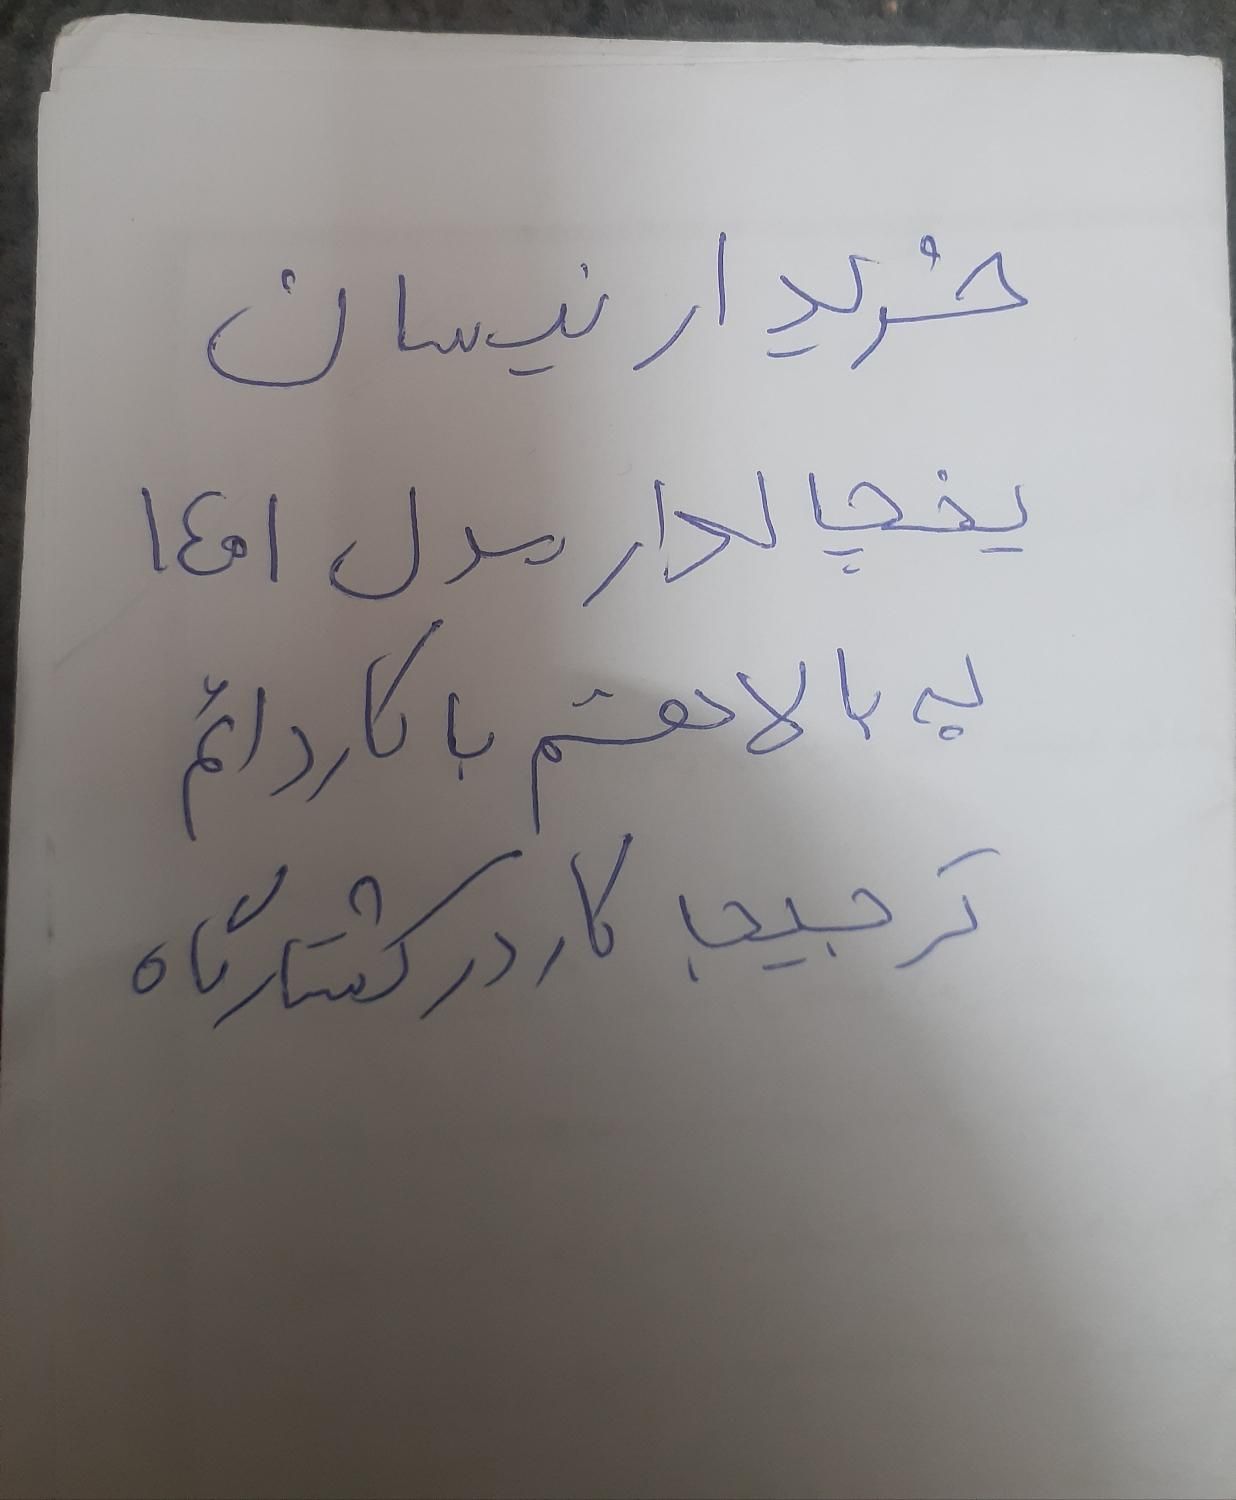 خریدار نیسان
یخچالدار مدل ۱۴۰۱
به بالا هستم با کار دائم
ترجیحا کار در کشتارگاه